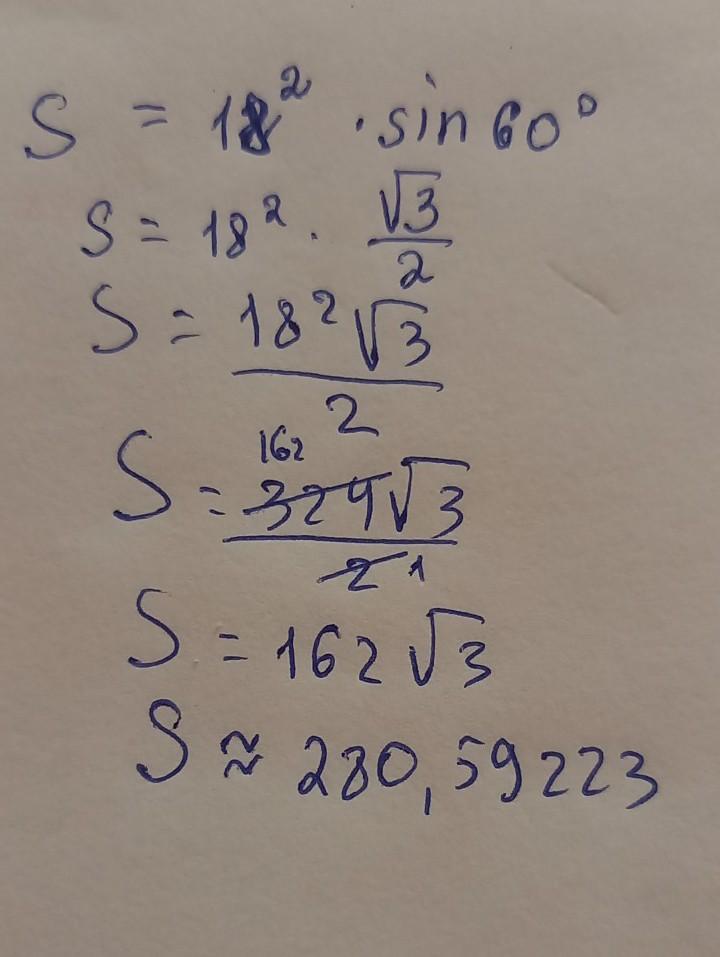 S = 18² · sin 60°
S = 18² · √3/2
S = 18²√3/2
S = 162 324√3/2 1
S = 162√3
S ≈ 280,59223